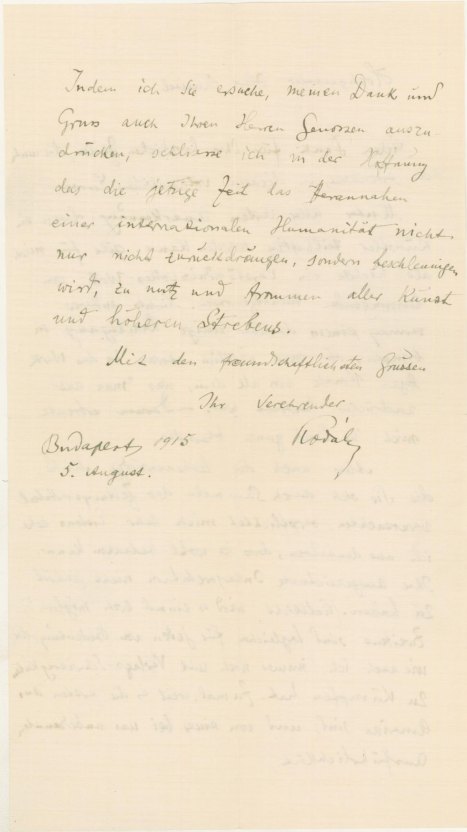 Indem ich Sie ersuche, meinen Dank und
Gruss auch Ihren Herren Genossen auszu-
drücken, schliesse ich in der Hoffnung
das die jetzige Zeit das Herannahen
einer internationalen Humanität nicht
nur nicht zurückdrängen, sondern beschleunigen
wird, zu nutz und frommen aller Kunst
und höheren Strebens.
Mit den freundschaftlichsten Grüssen
Ihr Verehrender
Kodály
Budapest 1915
5. August.